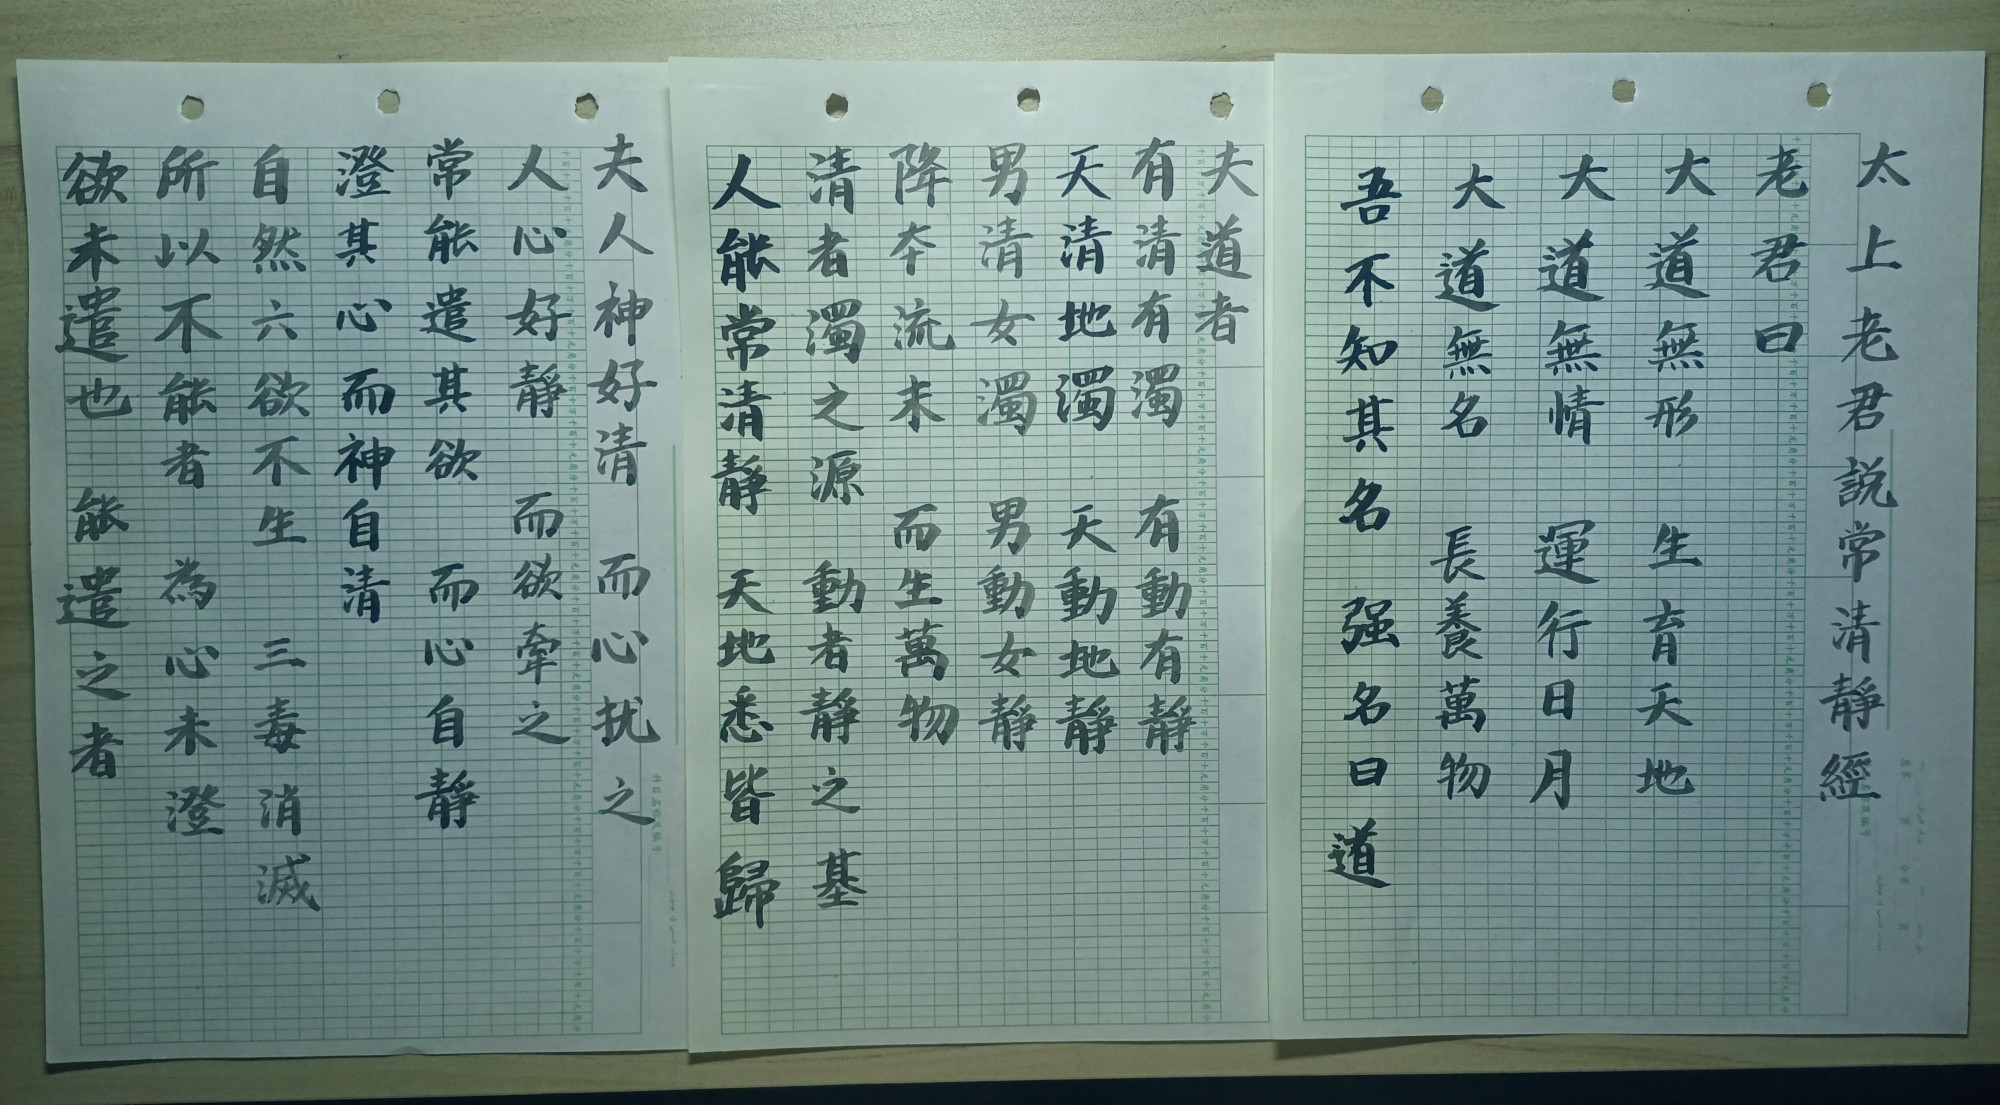 太上老君説常清靜經
老君曰
大道無形 生育天地
大道無情 運行日月
大道無名 長養萬物
吾不知其名 强名曰道
夫道者
有清有濁 有動有靜
天清地濁 天動地靜
男清女濁 男動女靜
降夲流末 而生萬物
清者濁之源 動者靜之基
人能常清靜 天地悉皆歸
夫人神好清 而心扰之
人心好靜 而欲牽之
常能遣其欲 而心自靜
澄其心而神自清
自然六欲不生 三毒消滅
所以不能者 為心未澄
欲未遣也 能遣之者